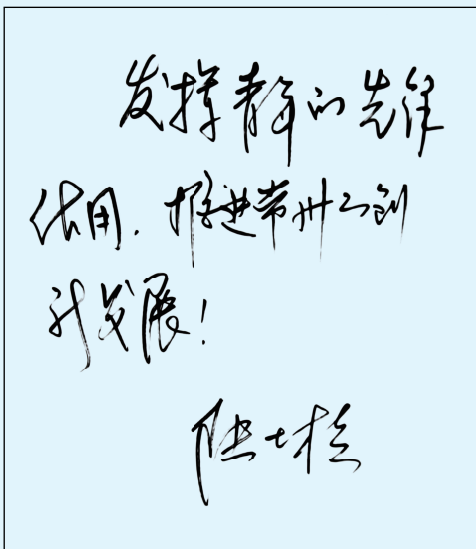 发挥青年的先锋
作用，推进常州之创
新发展！
陆士桢